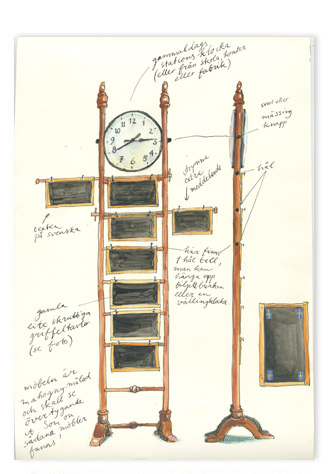 gammaldags
stations klocka
(eller från skola, kontor
eller fabrik)
12
1
2
3
4
5
6
7
8
9
10
11
svart eller
mässing
knapp
hål
extra
meddelande
texten
på svenska
här finns
1 hål till,
man kan
hänga upp
eller en
vällingklocka
gamla
lite skruttiga
griffeltavlor
(se foto)
möbeln är
mahognymålad
och skall se
övertygande
ut. Som om
sådana möbler
fanns!